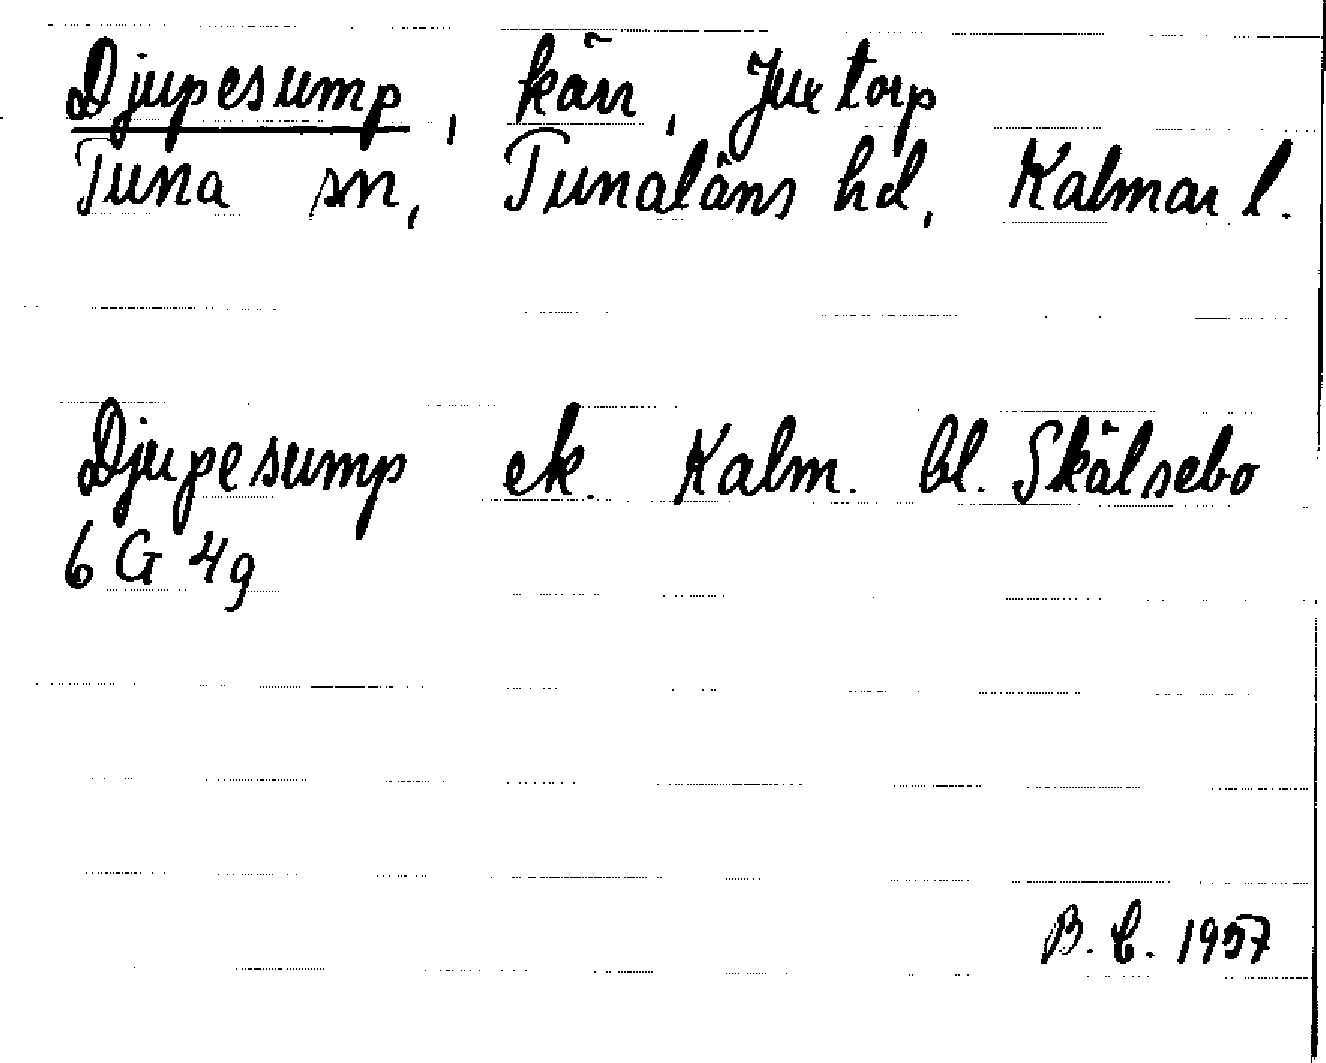 Djupesump, kärr, Juxtorp
Tuna sn, Tunaläns hd, Kalmar l.
Djupesump ek. Kalm. bl. Skälsebo
6 G 4g
B. E. 1957